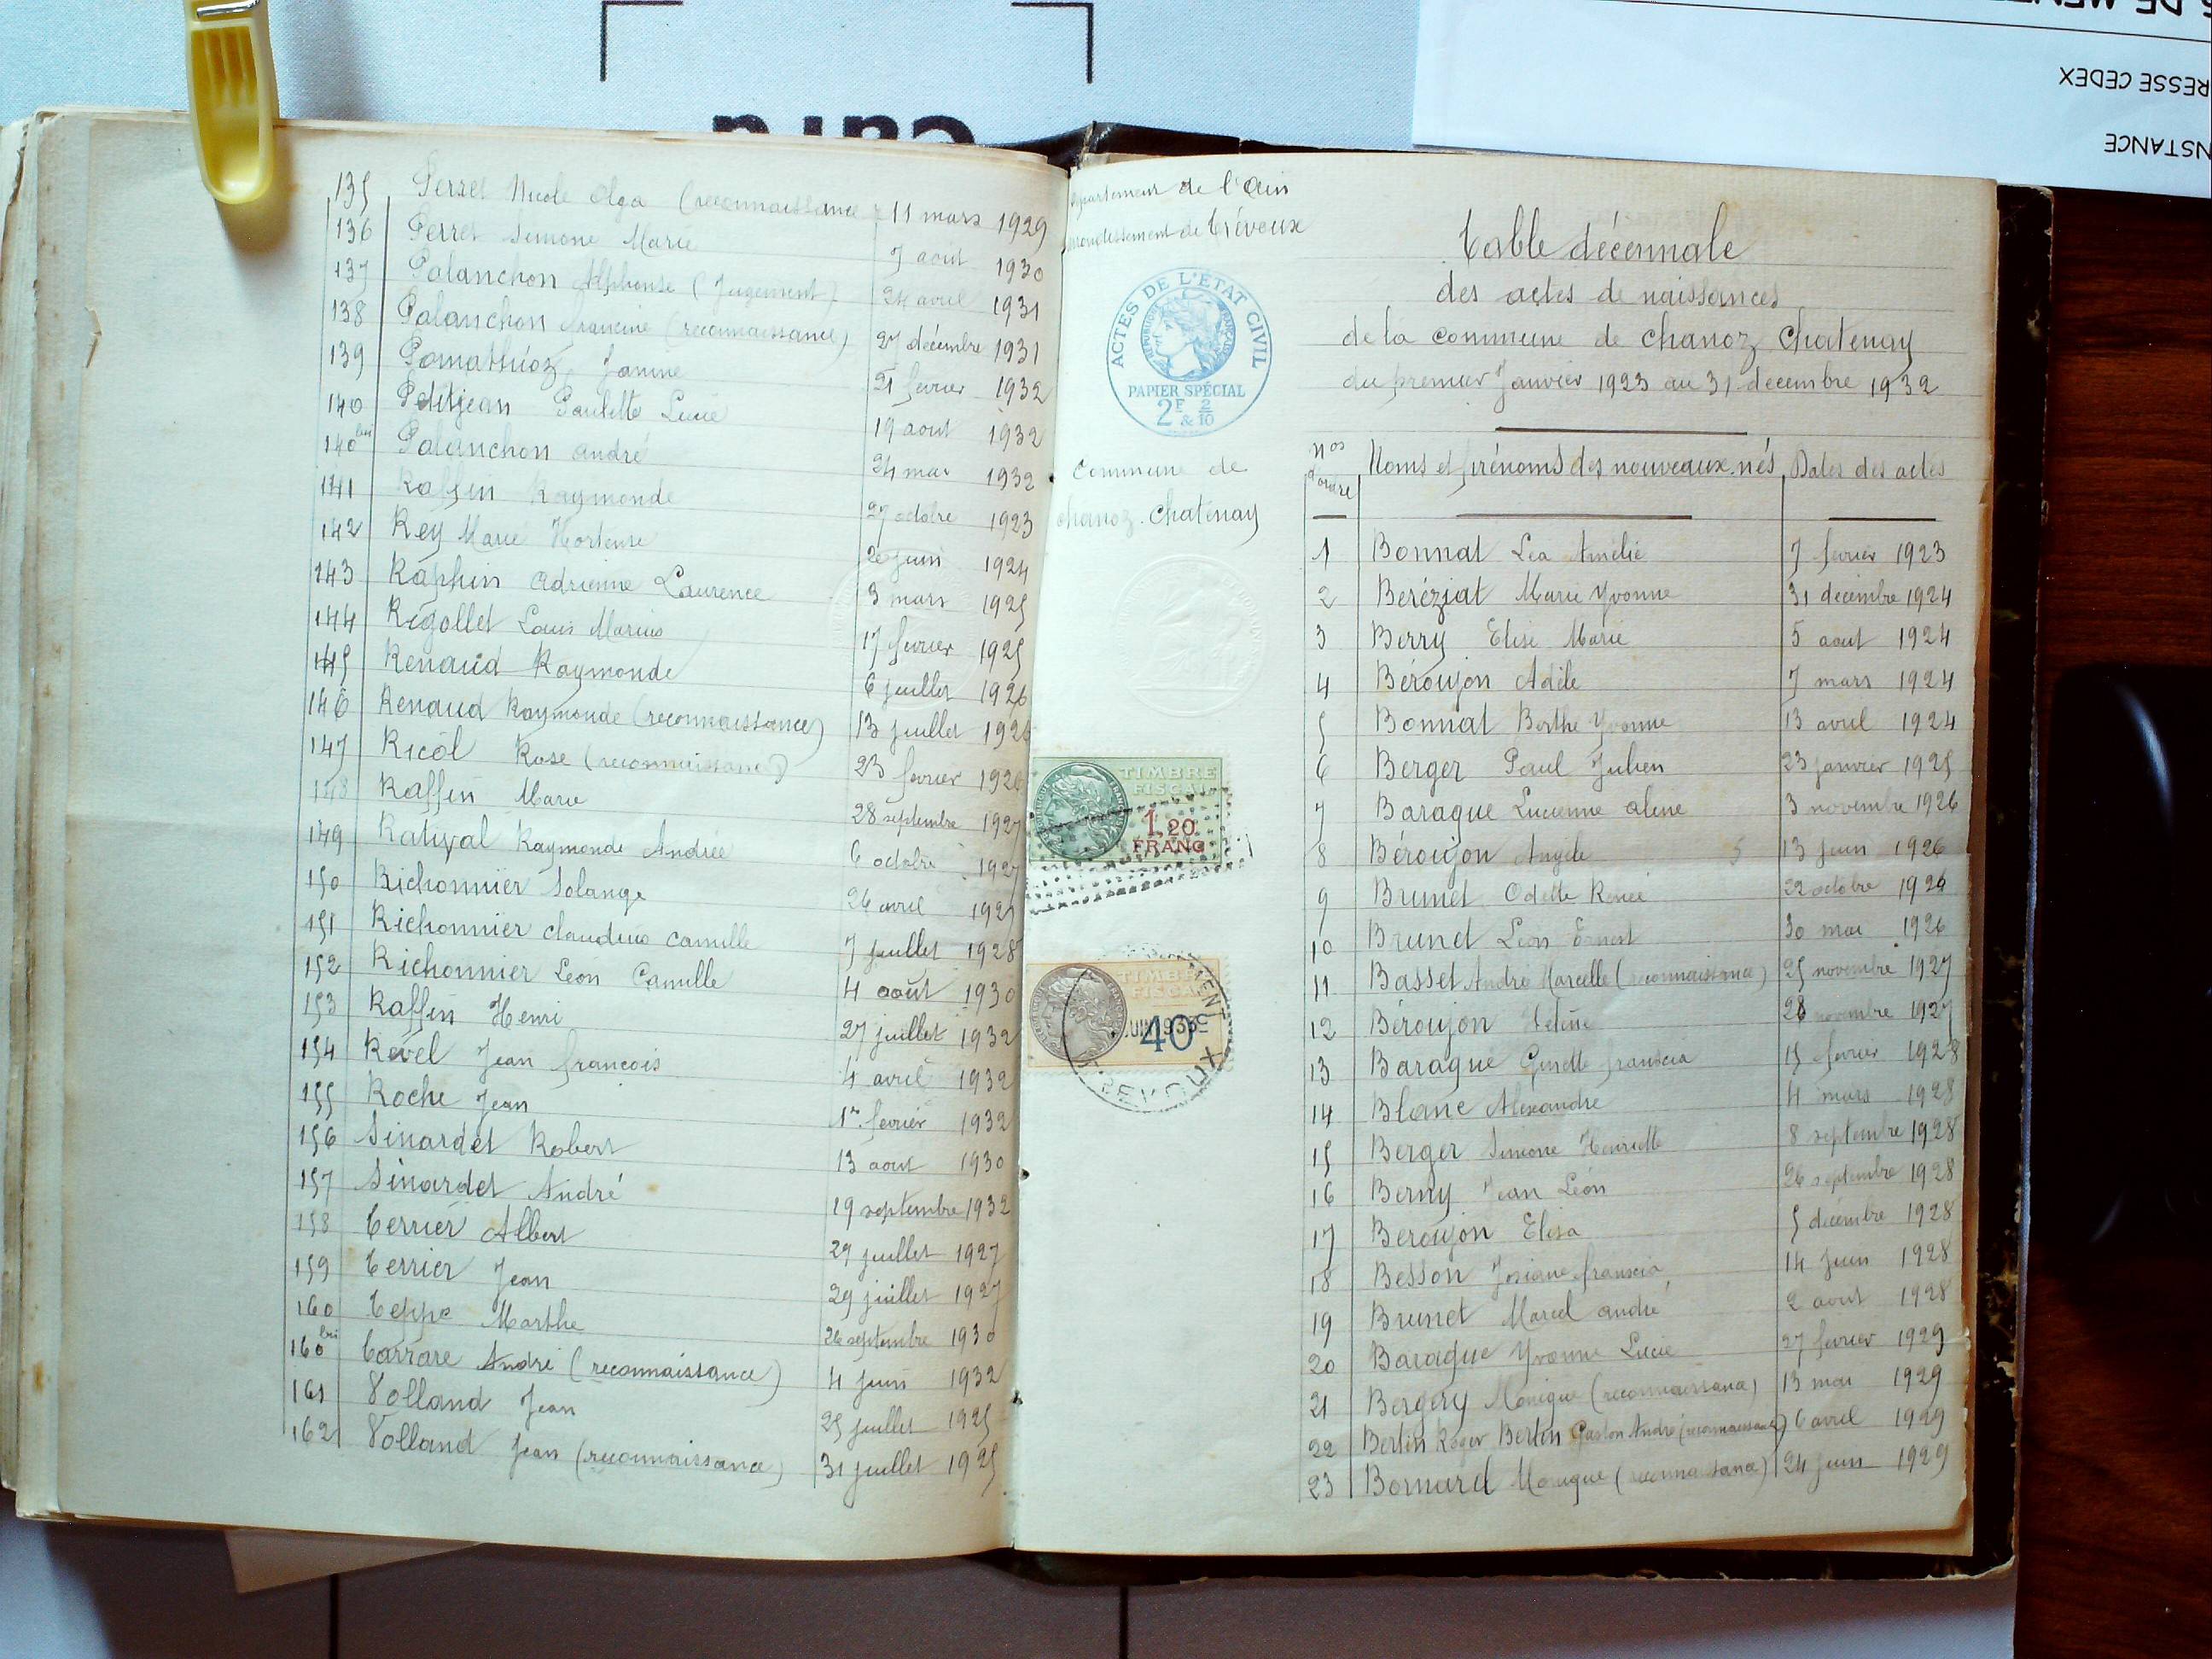 135 Perret Nicole Olga (reconnaissance) 11 mars 1929
136 Perret Simone Marie 7 août 1930
137 Palanchon Alphonse (Jugement) 24 avril 1931
138 Palanchon francine (reconnaissance) 27 décembre 1931
139 Pomathioz Janine 21 fevrier 1932
140 Petitjean Paulette Lucie 19 aout 1932
140 bis Palanchon andré 24 mai 1932
141 Raffin Raymonde 27 octobre 1923
142 Rey Marie Hortense juin 1924
143 Raphin Adrienne Laurence 3 mars 1925
144 Rigollet Louis Marius 17 fevrier 1925
145 Renaud Raymonde 6 juillet 1926
146 Renaud Raymonde (reconnaissance) 13 juillet 1926
147 Ricol Rose (reconnaissance) 23 fevrier 1926
148 Raffin Marie 28 septembre 1927
149 Raymonde Andrée 6 octobre 1927
150 Richonnier Solange 26 avril 1927
151 Richonnier claudius camille 7 juillet 1928
152 Richonnier Léon Camille 4 août 1930
153 Raffin Henri 27 juillet 1932
154 Revel Jean francois 4 avril 1932
155 Roche Jean 1er fevrier 1932
156 Sinardet Robert 13 aout 1930
157 Sinardet André 19 septembre 1932
158 Terrier Albert 29 juillet 1927
159 Terrier Jean 29 juillet 1927
160 Teppe Marthe 26 septembre 1930
160 bis Carrare André (reconnaissance) 4 juin 1932
161 Volland Jean 25 juillet 1925
162 Volland Jean (reconnaissance) 31 juillet 1925
Département de l'Ain
arrondissement de Trévoux
ACTES DE L'ÉTAT CIVIL
RÉPUBLIQUE FRANÇAISE
PAPIER SPÉCIAL
2F & 2/10
Commune de
chanoz-Chatenay
TIMBRE
FISCAL
1,20
FRANC
TIMBRE
FISCAL
40c
TREVOUX
Table décennale
des actes de naissances
de la commune de Chanoz Chatenay
du premier Janvier 1923 au 31 decembre 1932
nos d'ordre Noms et prénoms des nouveaux-nés Dates des actes
1 Bonnat Lea Amélie 7 fevrier 1923
2 Beréziat Marie Yvonne 31 décembre 1924
3 Berry Elise Marie 5 aout 1924
4 Béroujon Adèle 7 mars 1924
5 Bonnat Berthe Yvonne 13 avril 1924
6 Berger Paul Julien 23 janvier 1925
7 Barague Lucienne aline 3 novembre 1926
8 Béroujon Angèle 13 juin 1926
9 Brunet Odette Renée 22 octobre 1926
10 Brunet Léon Ernest 30 mai 1926
11 Basset André Marcelle (reconnaissance) 25 novembre 1927
12 Béroujon Hélène 28 novembre 1927
13 Barague Ginette francia 15 fevrier 1928
14 Blanc Alexandre 4 mars 1928
15 Berger Simone Henriette 8 septembre 1928
16 Berny Jean Léon 26 septembre 1928
17 Beroujon Elisa 5 décembre 1928
18 Besson Josiane francia 14 juin 1928
19 Brunet Marcel andré 2 aout 1928
20 Barague Yvonne Lucie 27 fevrier 1929
21 Bergery Monique (reconnaissance) 13 mai 1929
22 Bertin Roger Bertin Gaston André (reconnaissance) 6 avril 1929
23 Bornard Monique (reconnaissance) 24 juin 1929
DE
RESSE CEDEX
NSTANCE